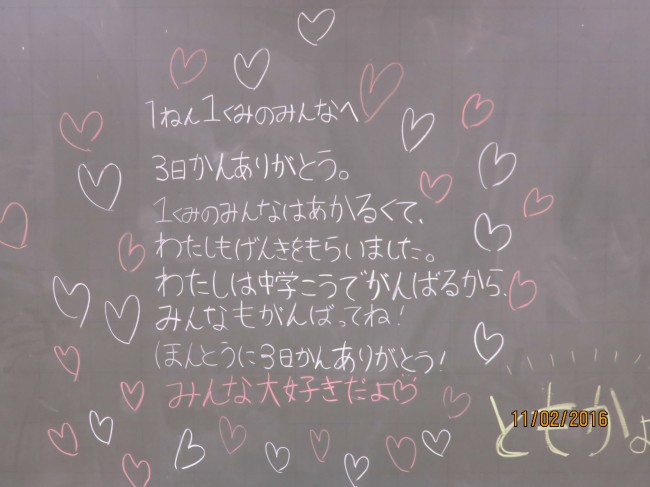 1ねん1くみのみんなへ
3日かんありがとう。
1くみのみんなはあかるくて、
わたしもげんきをもらいました。
わたしは中学こうでがんばるから、
みんなもがんばってね!
ほんとうに3日かんありがとう!
みんな大好きだよ♡
ともかよ
11/02/2016